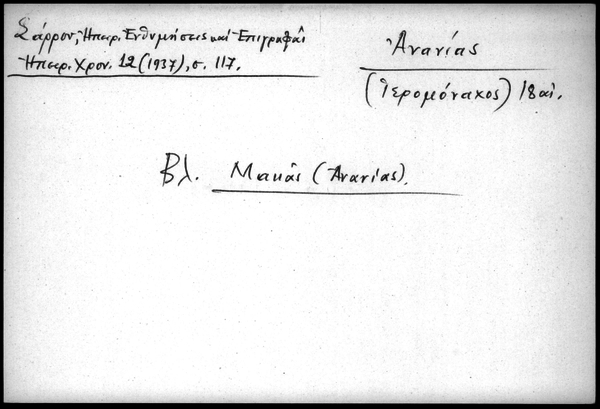 Σάρρου, Ἠπειρ. Ἐνθυμήσεις καὶ Ἐπιγραφαὶ
Ἠπειρ. Χρον. 12 (1937), σ. 117.
Ἀνανίας
(Ἱερομόναχος) 18 αἰ.
Βλ. Μακᾶς (Ἀνανίας).